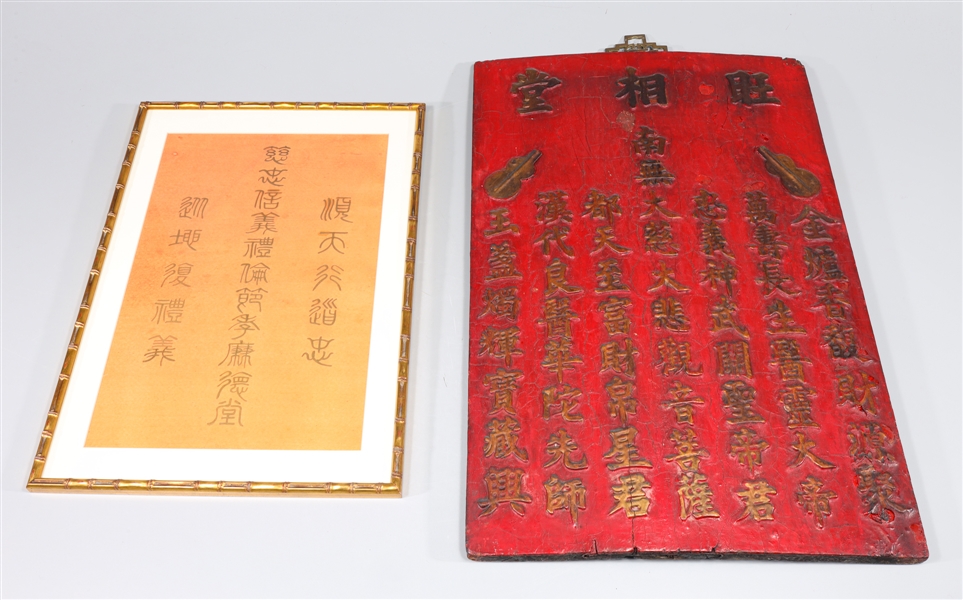 順天行道忠
慈忠信義禮倫節孝廉德堂
巡地復禮義
旺相堂
金爐香馥財源聚
萬壽長生醫靈大帝
忠義神武關聖帝君
南無大慈大悲觀音菩薩
都天至富財帛星君
漢代良醫華陀先師
玉盞燭輝寳藏興